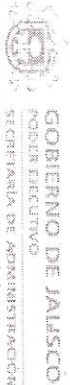 GOBIERNO DE JALISCO
PODER EJECUTIVO
SECRETARÍA DE ADMINISTRACIÓN